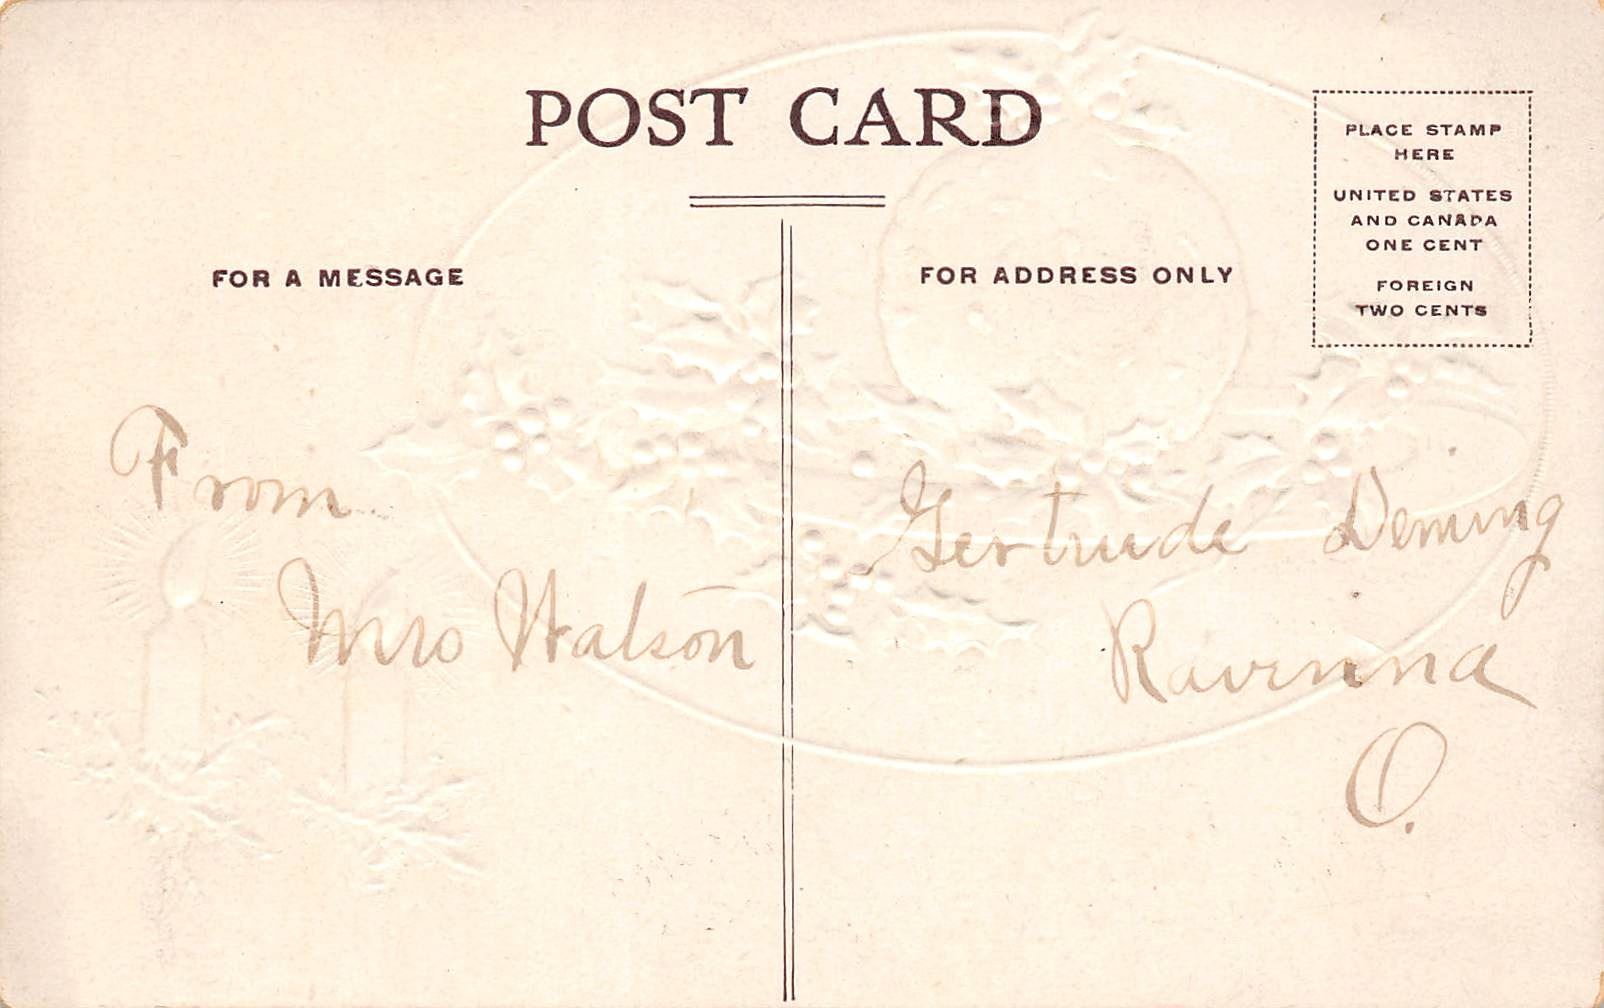 POST CARD
PLACE STAMP
HERE
UNITED STATES
AND CANADA
ONE CENT
FOREIGN
TWO CENTS
FOR A MESSAGE
FOR ADDRESS ONLY
From
Mrs Watson
Gertrude Deming
Ravenna
O.